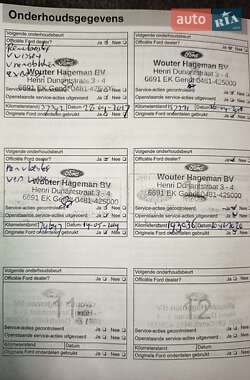 auto
RIA.com
Onderhoudsgegevens
Volgende onderhoudsbeurt
Officiële Ford dealer? Ja Nee
Wouter Hageman BV
Henri Dunantstraat 3 - 4
6691 EK Gendt 0481-425000
Service-acties gecontroleerd Ja Nee
Openstaande service-acties uitgevoerd Ja Nee
Kilometerstand Datum
Originele Ford onderdelen gebruikt Ja Nee
Volgende onderhoudsbeurt
Officiële Ford dealer? Ja Nee
Ford
Wouter Hageman BV
Henri Dunantstraat 3 - 4
6691 EK Gendt 0481-425000
Service-acties gecontroleerd Ja Nee
Openstaande service-acties uitgevoerd Ja Nee
Kilometerstand Datum
Originele Ford onderdelen gebruikt Ja Nee
Volgende onderhoudsbeurt
Officiële Ford dealer? Ja Nee
Ford
Wouter Hageman BV
Henri Dunantstraat 3 - 4
6691 EK Gendt 0481-425000
Service-acties gecontroleerd Ja Nee
Openstaande service-acties uitgevoerd Ja Nee
Kilometerstand Datum
Originele Ford onderdelen gebruikt Ja Nee
Volgende onderhoudsbeurt
Officiële Ford dealer? Ja Nee
Ford
Wouter Hageman BV
Henri Dunantstraat 3 - 4
6691 EK Gendt 0481-425000
Service-acties gecontroleerd Ja Nee
Openstaande service-acties uitgevoerd Ja Nee
Kilometerstand Datum
Originele Ford onderdelen gebruikt Ja Nee
Volgende onderhoudsbeurt
Officiële Ford dealer? Ja Nee
11
Service-acties gecontroleerd Ja Nee
Openstaande service-acties uitgevoerd Ja Nee
Kilometerstand Datum
Originele Ford onderdelen gebruikt Ja Nee
Volgende onderhoudsbeurt
Officiële Ford dealer? Ja Nee
12
Service-acties gecontroleerd Ja Nee
Openstaande service-acties uitgevoerd Ja Nee
Kilometerstand Datum
Originele Ford onderdelen gebruikt Ja Nee